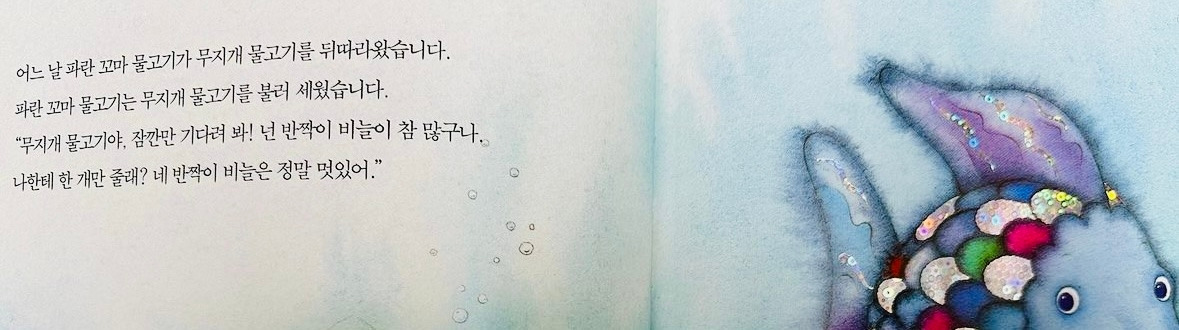 어느 날 파란 꼬마 물고기가 무지개 물고기를 뒤따라왔습니다.
파란 꼬마 물고기는 무지개 물고기를 불러 세웠습니다.
“무지개 물고기야, 잠깐만 기다려 봐! 넌 반짝이 비늘이 참 많구나.
나한테 한 개만 줄래? 네 반짝이 비늘은 정말 멋있어.”